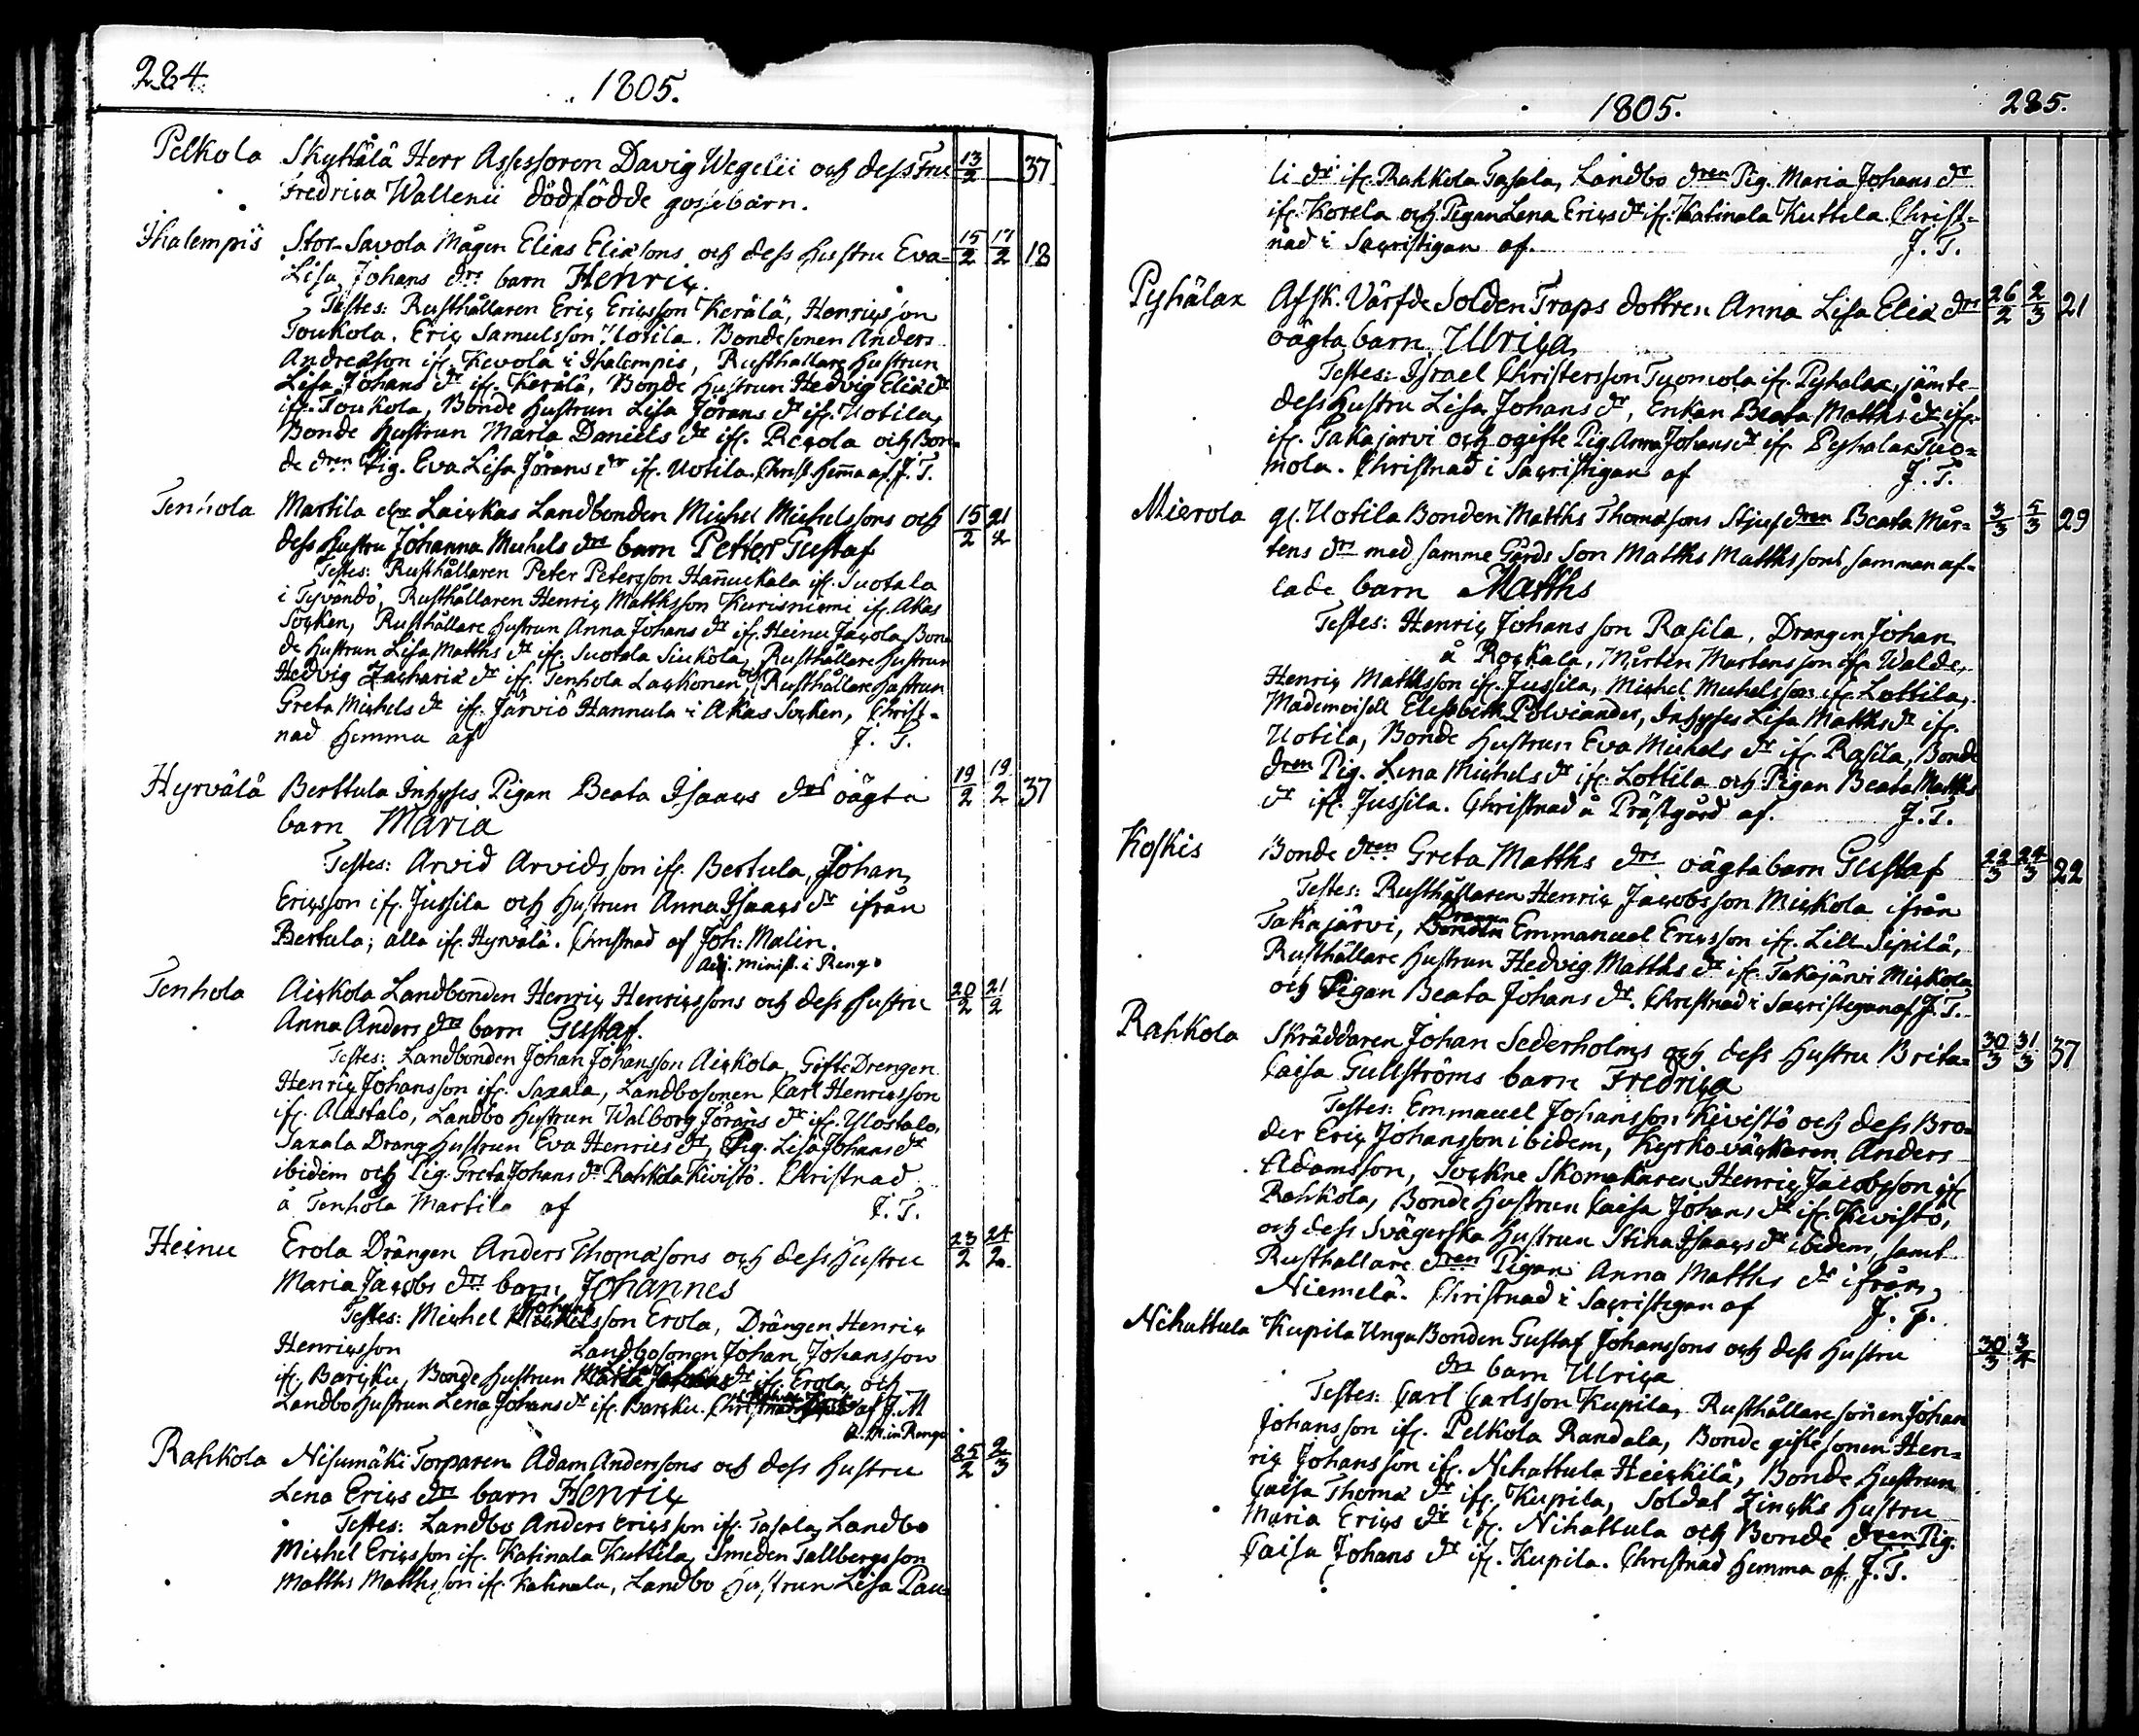 284.
1805.
Pelkola Skyttälä Herr Assessoren Davig Wegelii och dess Fru 13/2 37
Fredrica Wallenii dödfödde gossebarn.
Ihalempis Stor-Savola Mågen Elias Eliæsons och dess hustru Eva- 15/2 17/2 18
Lisa Johans drs barn Henric.
Testes: Rusthållaren Eric Ericsson Kerälä, Henricsson
Toukola, Eric Samulsson Uotila. Bondesonen Anders
Andreæson ifr. Kevola i Ihalempis, Rusthallare hustrun
Lisa Johans dr ifr. Kerälä, Bonde hustrun Hedvig Eliæ dr
ifr. Toukola, Bonde hustrun Lisa Jörans dr ifr. Uotila,
Bonde hustrun Maria Daniels dr ifr. och Bon-
de dren Pig. Eva Lisa Jörans dr ifr. Uotila. Christ. hem̄a af J. T.
Tenhola Martila Laickas Landbonden Michel Michelssons och 15/2 21/2
dess hustru Johanna Michels drs barn Petter Gustaf
Testes: Rusthållaren Peter Petersson Han̄uckala ifr. Suotala
i Tyvändö, Rusthållaren Henric Matthsson Kurisniemi ifr. Akas
Socken, Rusthållare hustrun Anna Johans dr ifr. Heinu Jacola, Bon-
de hustrun Lisa Matths dr ifr. Suotala Siukola, Rusthållare hustrun
Hedvig Zachariæ dr ifr. Tenhola Lackonen, Rusthållare hustrun
Greta Michels dr ifr. Järviö Hannula i Akas Socken, Christ-
nad hemma af J. T.
Hyrvälä Berttula Inhyses Pigan Beata Isaacs drs oägta 19/2 19/2 37
barn Maria
Testes: Arvid Arvidsson ifr. Bertula, Johan
Ericsson ifr. Jussila och hustrun Anna Isaacs dr ifrån
Bertula; alla ifr. Hyrvälä. Christnad af Joh: Malin.
Adj. minist. i Rengo
Tenhola Aickola Landbonden Henric Henricssons och dess hustru 20/2 21/2
Anna Anders drs barn Gustaf.
Testes: Landbonden Johan Johansson Aickola, Gifte Drengen
Henric Johansson ifr. Saxala, Landbosonen Carl Henricsson
ifr. Alastalo, Landbo hustrun Walborg Jörans dr ifr. Ylostalo,
Saxala Drang hustrun Eva Henrics dr, Pig. Lisa Johans dr
ibidem och Pig. Greta Johans dr Rahkola Kivistö. Christnad
å Tenhola Martila af J. T.
Heinu Erola Drängen Anders Thomæsons och dess hustru 23/2 24/2
Maria Jacobs drs barn Johannes
Testes: Michel Johansson Erola, Drängen Henric
Henricsson Landbosonen Johan Johansson
ifr. Baricku, Bonde hustrun Lisa dr ifr. Erola, och
Landbo hustrun Lena Johans dr ifr. Baricku. af J. M
a. M. in Rengo
Rahkola Nisumäki Torparen Adam Anderssons och dess hustru 25/2 2/3
Lena Erics drs barn Henric
Testes: Landbo Anders Ericsson ifr. Tasala, Landbo
Michel Ericsson ifr. Katinala Kuttila, Smeden Tallbergs son
Matths Matthsson ifr. Katinala, Landbo hustrun Lisa Pau-
1805. 285.
li dr ifr. Rahkola Tasala, Landbo dren Pig. Maria Johans dr
ifr. Korela och Pigan Lena Erics dr ifr. Katinala Kuttela. Christ-
nad i Sacristigan af J. T.
Pyhälax Afsk. Värfde Solden Traps dottren Anna Lisa Eliæ drs 26/2 2/3 21
oägta barn Ulrica
Testes: Israel Christersson Tuomola ifr. Pyhalax, jämte
dess hustru Lisa Johans dr, Enkan Beata Matths dr ifr.
ifr. Takajarvi och ogifte Pig. Anna Johans dr ifr. Pyhalax Tuo-
mola. Christnad i Sacristigan af J. T.
Mierola gl. Uotila Bonden Matths Thomæsons Stjufdren Beata Mår- 3/3 5/3 29
tens drs med samme Gårds Son Matths Matthssons samman af-
lade barn Matths
Testes: Henric Johansson Rasila, Drangen Johan
å Rockala, Mårten Martensson ifr. Walde,
Henric Matthsson ifr. Jussila, Michel Michelsson ifr. Lottila,
Mademoisell Elisabeth Polviander, Inhyses Lisa Matths dr ifr.
Uotila, Bonde hustrun Eva Michels dr ifr. Rasila, Bonde
dren Pig. Lena Michels dr ifr. Lottila och Pigan Beata Matths
dr ifr. Jussila. Christnad å Prästgård af J. T.
Koskis Bonde dren Greta Matths drs oägta barn Gustaf 22/3 24/3 22
Testes: Rusthållaren Henric Jacobsson Mickola ifrån
Takajärvi, Drangen Emmanuel Ericsson ifr. Lill-Sipilä,
Rusthållare hustrun Hedvig Matths dr ifr. Takajärvi Mickola
och Pigan Beata Johans dr. Christnad i Sacristigan af J. T.
Rahkola Skräddaren Johan Sederholms och dess hustru Brita- 30/3 31/3 37
Caisa Gullströms barn Fredrica
Testes: Emmanuel Johansson Kivistö och dess Bro-
der Eric Johansson ibidem, Kyrkoväcktaren Anders
Adamsson, Sockne Skomakaren Henric Jacobsson ifr
Rahkola, Bonde hustrun Caisa Johans dr ifr. Kivisto,
och dess Svägerska hustrun Stina Isaacs dr ibidem, samt
Rusthallare dren Pigan Anna Matths dr ifrån
Niemelä. Christnad i Sacristigan af J. T.
Nihattula Kupila Unga Bonden Gustaf Johanssons och dess hustru 30/3 3/4
drs barn Ulrica
Testes: Carl Carlsson Kupila, Rusthållare sonen Johan
Johansson ifr. Pelkola Randala, Bonde gifte sonen Hen-
ric Johansson ifr. Nihattula Heickilä, Bonde hustrun
Caisa Thomæ dr ifr. Kupila, Soldat Zincks hustru
Maria Erics dr ifr. Nihattula och Bonde dren Pig.
Caisa Johans dr ifr. Kupila. Christnad hemma af J. T.